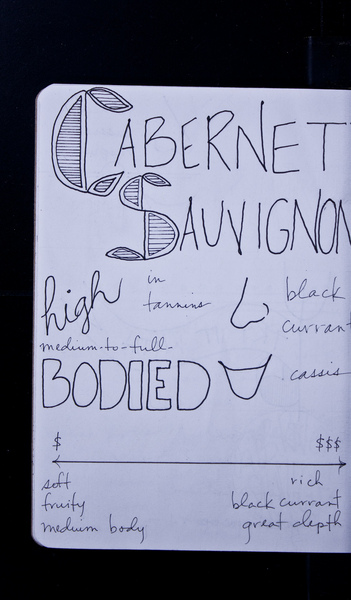 CABERNET
SAUVIGNON
high in tannins
black currant
medium-to-full-
BODIED
cassis
$ $$$
soft rich
fruity black currant
medium body great depth